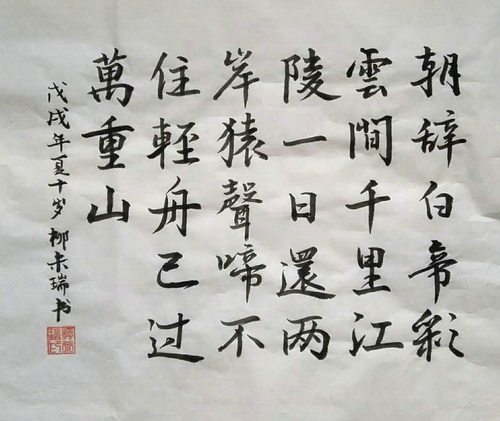 朝辞白帝彩
雲間千里江
陵一日還两
岸猿聲啼不
住輕舟已过
萬重山
戊戌年夏十岁柳瑞书